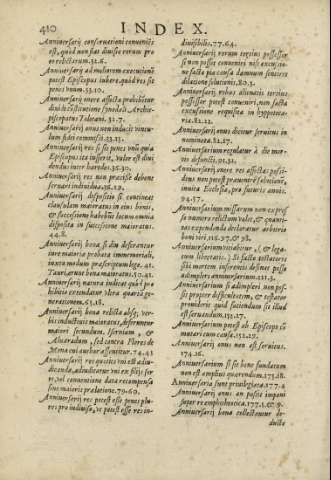 410 INDEX.
Anniversarij conservationi convenite
est, quòd non fiat divisio rerum pro
eo relictarum.32.6.
Anniversarij ad nullorem executionē
potest Episcopus iubere, quòd res sit
penes unum.33.10.
Anniversarij onere affecta prohibētur
dividi
Archie-
piscopatus Toletani.32.7.
Anniversarij onus non inducit vincu-
lum fidei commissi.23.13.
Anniversarij res si sit penes unū quia
Episcopus ita iusserit, valor est divi
dendus inter haredes.36.30.
Anniversarij res non praecisè debent
servari individua.36.29.
Anniversarij dispositio si contineat
clausulam maioratus in eius bonis,
& successione habebūt locum omnia
disposita in successione maioratus.
44.8.
Anniversarij bona si diu deferantur
iure maioria probata immemoriali,
iuxta modum praescriptum lege. 41.
Tauri, erunt bona maioratus.10.41.
Anniversarij natura indicat quòd pa
trilinio extendatur ultra quartā ge-
nerationem.63.18.
Anniversarij bona relicta absq; ver-
bis inductivis maioratus, deferuntur
maiori secundum Iserniam, &
Alvaradum, sed contra Flores de
Mena cui author assentitur.74.43
Anniversarij res quoties vni est adiu
dicanda, adiudicatur vni ex filijs fer
re, vel convenienti data recompensa
sius maioris praelatione.79.60.
Anniversarij res potest esse penes plu-
res pro indiviso, et potest esse res in-
divisibilis.77.64.
Anniversarij rerum tertius possessor
si non possit conveniri nisi excusio-
ne facta pia causa damnum sentiret
dilatione solutionis.80.3.
Anniversarij rebus alienatis tertius
possessor potest conveniri, non facta
excussione requisita in hypotheca-
ria.82.12.
Anniversarij onus dicitur servitus in
nominata.82.17.
Anniversarium regulatur à die mor
tis defuncti.91.32.
Anniversarij onere res affectas possi-
dens non potest praevenire solutionē,
invita Ecclesia, pro futuris annis.
94.57.
Anniversarium missarum non expres
so numero relictum valet, & quanti-
tas expendenda declaratur arbitrio
boni viri.116.97.& 98.
Anniversarium vitiabitur, (& lega-
tum libertatis.) Si facta testatoris
siti mortem inferentis desinet posse
adimpleri anniversarium.121.3.
Anniversarium si adimpleri non pos-
sit propter difficultatem, & testator
providerit quid faciendum sit illud
est servandum.131.17.
Anniversarium potest ab Episcopo cō
mutari cum causa.132.29.
Anniversarij onus non est servitus.
174.16.
Anniversarium si sit bene fundatum
non est amplius quaerendum.175.28.
Anniversaria sunt privilegiata.177.4
Anniversarij onus an possit imponi
super re emphyteutica.177.1.& 9.
Anniversarij bona collectantur de-
ducto